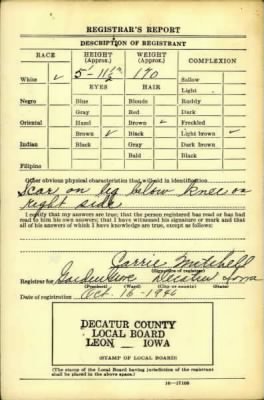 REGISTRAR'S REPORT
DESCRIPTION OF REGISTRANT
RACE HEIGHT (Approx.) WEIGHT (Approx.) COMPLEXION
White ✓ 5' 11½" 170 Sallow
Light
EYES HAIR
Negro Blue Blonde Ruddy
Gray Red Dark
Oriental Hazel Brown ✓ Freckled
Brown ✓ Black Light brown ✓
Indian Black Gray Dark brown
Bald Black
Filipino
Other obvious physical characteristics that will aid in identification
Scar on leg below knee on
right side
I certify that my answers are true; that the person registered has read or has had
read to him his own answers; that I have witnessed his signature or mark and that
all of his answers of which I have knowledge are true, except as follows:
Carrie Mitchell
(Signature of registrar)
Registrar for Decatur Iowa
(Precinct) (Ward) (City or county) (State)
Date of registration Oct. 16 - 1940
DECATUR COUNTY
LOCAL BOARD
LEON IOWA
(STAMP OF LOCAL BOARD)
(The stamp of the Local Board having jurisdiction of the registrant
shall be placed in the above space.)